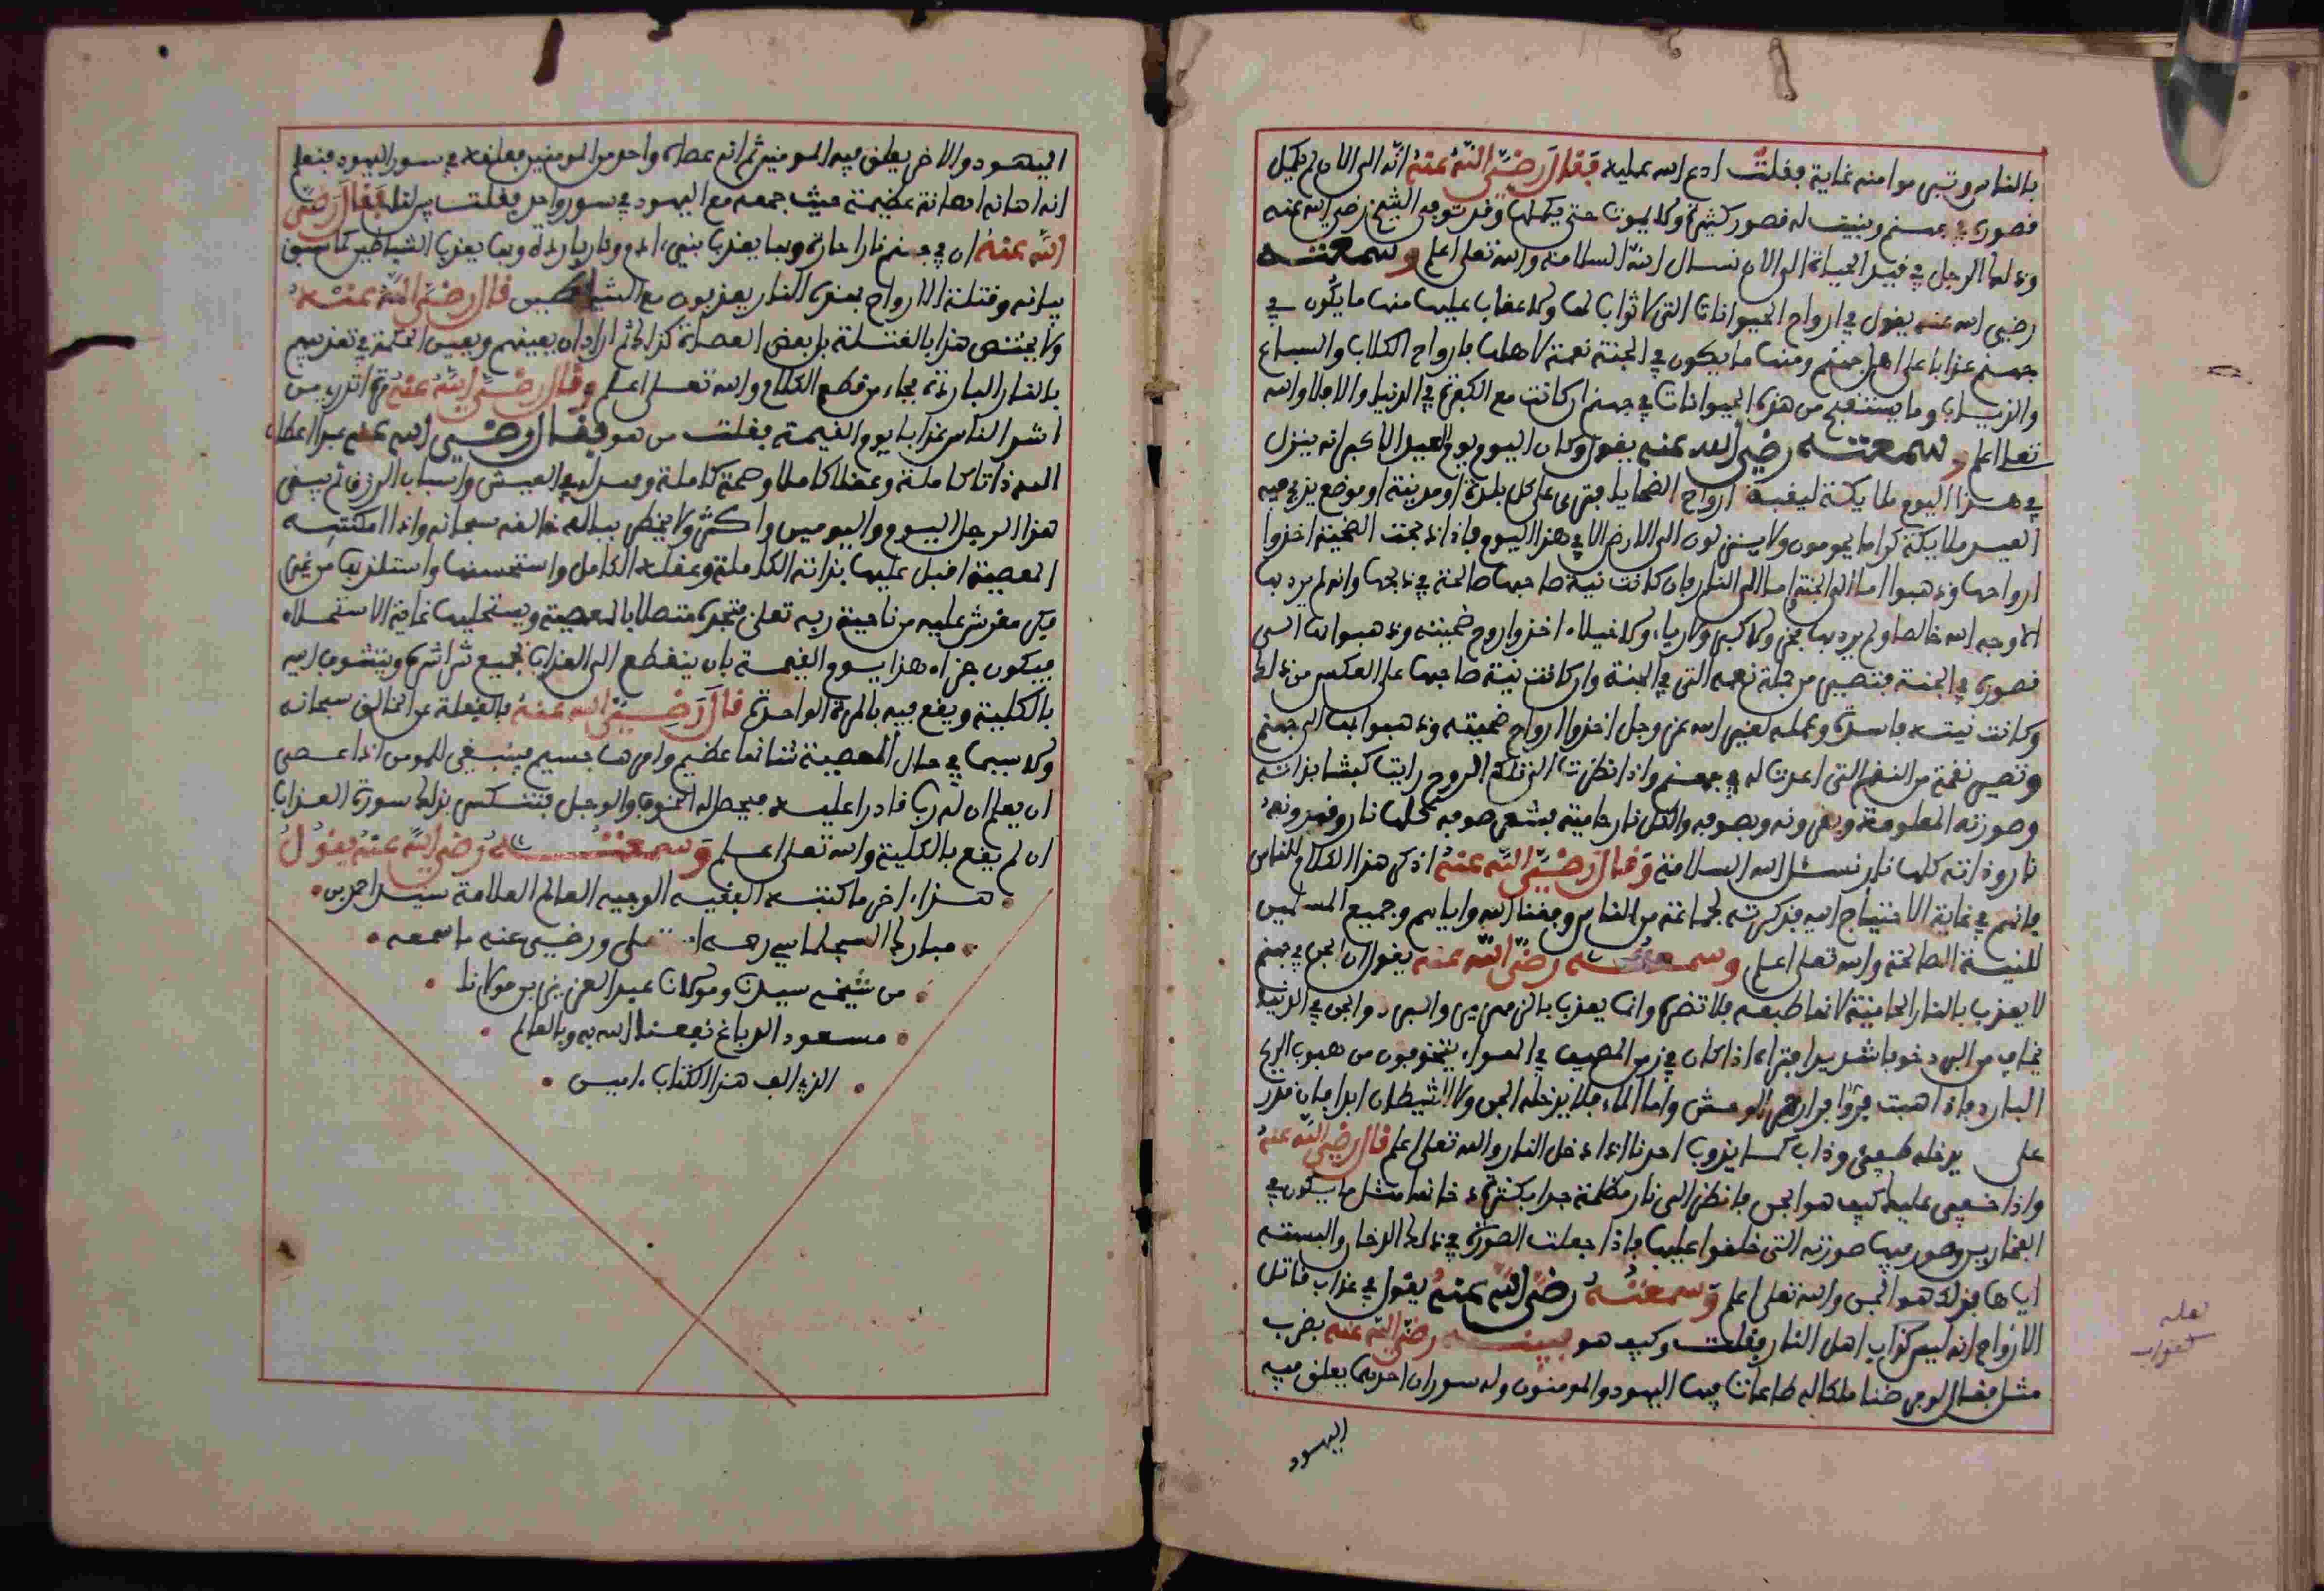 بالناس وتبرموا منه غاية فقلت ادع الله عليه فقال رضي الله عنه انه الى الان لم تكمل
قصوره في جهنم وبنيت له قصور كثيرة ولا يموت حتى يكملها وقد توفي الشيخ رضي الله عنه
وذلك الرجل في قيد الحياة الى الان نسال الله السلامة والله تعلى اعلم وسمعته
رضي الله عنه يقول في ارواح الحيوانات التي لا ثواب لها ولا عقاب عليها منها ما يكون في
جهنم عذابا على اهل جهنم ومنها ما يكون في الجنة نعمة لاهلها فارواح الكلاب والسباع
والذياب وما يستقبح من هذه الحيوانات في جهنم ان كانت مع الكفرة في الدنيا والا فلا والله
تعلى اعلم وسمعته رضي الله عنه يقول وكان اليوم يوم العيد الاكبر انه ينزل
في هذا اليوم ملايكة ليقبض ارواح الضحايا فترى على كل بلدة او مدينة او موضع يذبح فيه
العيد ملايكة كراما يحومون ولا ينزلون الى الارض الا في هذا اليوم فاذا ذبحت الضحية اخذوا
ارواحها وذهبوا اما الى الجنة واما الى النار فان كانت نية صاحبها صالحة في ذبحها وانه لم يرد بها
الا وجه الله خالصا ولم يرد بها فخر ولا كبر ولا رياء ولا خيلاء اخذوا روح ضحيته وذهبوا بها الى
قصوره في الجنة فتصير من جملة نعمه التي في الجنة وان كانت نية صاحبها على العكس من ذلك
وكانت نيته فاسدة وعمله لغير الله عز وجل اخذوا ارواح ضحيته وذهبوا بها الى جهنم
وتصير نقمة من النقم التي اعدت له في جهنم واذا نظرت الى تلك الروح رايت كبشا بذاته
وصورته المعلومة وبقرونه وبصوفه والكل نار حامية فشعر صوفه كلها نار وقرونه
نار وذاته كلها نار نسئل الله السلامة وقال رضي الله عنه اذكر هذا الكلام للناس
فانهم في غاية الاحتياج اليه فذكرته لجماعة من الناس وفقنا الله واياهم وجميع المسلمين
للنية الصالحة والله تعلى اعلم وسمعته رضي الله عنه يقول ان الجن في جهنم
لا يعذب بالنار الحامية لانها طبعه فلا تضره وانما يعذب بالزمهرير والبرد والجن في الدنيا
يخاف من البرد خوفا شديدا فتراه اذا كان في زمن المصيف في الهواء يتخوفون من هبوب الريح
البارد فاذا هبت فروا فرار حمر الوحش واما الماء فلا يدخله الجن ولا الشيطان ابدا فان قدر
على يدخله طفئ وذاب كما يذوب احدنا اذا دخل النار والله تعلى اعلم قال رضي الله عنه
واذا خفي عليك كيف هو الجن فانظر الى نار مظلمة جدا بكثرة دخانها مثل ما يكون في
الفخارين وصور فيها صورته التي خلقوا عليها فاذا جعلت الصورة في ذلك الدخان والبسته
اياها فذلك هو الجن والله تعلى اعلم وسمعته رضي الله عنه يقول في عذاب قاتل
الارواح انه ليس كعذاب اهل النار فقلت وكيف هو رضي الله عنه بضرب
مثل فقال لو فرضنا ملكا له طاعات فيها اليهود والمومنون وله سوران احدهما يعلق فيه
اليهود
لعله
كعذاب
اليهود والاخر يعلق فيه المومنين ثم انه عصاه واحد من المومنين فعلقه في سور اليهود فنعلم
انه اهانه اهانة عظيمة حيث جمعه مع اليهود في سور واحد فقلت بين لنا فقال رضي
الله عنه ان في جهنم نارا حارة وبها يعذب بني ادم ونار باردة وبها يعذب الشياطين كما سبق
بيانه وقتلة الارواح بهذه النار يعذبون مع الشياطين قال رضي الله عنه
ولا يختص هذا بالقتلة بل بعض العصاة كذلك ثم اراد ان يعينهم ويعين الحكمة في تعذيبهم
بالنار الباردة فجاء من قطع الكلام والله تعلى اعلم وقال رضي الله عنه مرة اتدري من
اشد الناس عذابا يوم القيمة فقلت من هو فقال رضي الله عنه عبد اعطاه
الله ذاتا كاملة وعقلا كاملا وصحة كاملة وسهل له في العيش واسباب الرزق ثم يبقى
هذا الرجل اليوم واليومين واكثر ولا يخطر بباله خالقه سبحانه واذا امكنته
المعصية اقبل عليها بذاته الكاملة وعقله الكامل واستحسنها واستلذ بها من غير
فكر مشوش عليه من ناحية ربه تعلى فتجده متصلا بالمعصية ويستحليها غاية الاستحلاء
فيكون جزاه هذا يوم القيمة بان ينقطع الى العذاب بجميع شراشره ويتشوف اليه
بالكلية ويقع فيه بالمرة الواحدة قال رضي الله عنه فالغفلة عن الخالق سبحانه
ولا سيما في حال المعصية شانها عظيم وامرها جسيم فينبغي للمومن اذا عصى
ان يعلم ان له ربا قادرا عليه فيحصل له الخوف والوجل فتنكسر بذلك سورة العذاب
ان لم يقع بالكلية والله تعلى اعلم وسمعته رضي الله عنه يقول
هذا اخر ما كتبه الفقيه الوجيه العالم العلامة سيد احمد بن
مبارك السجلماسي رحمه الله تعلى ورضي عنه ما سمعه
من شيخه سيدنا ومولانا عبد العزيز بن مولانا
مسعود الدباغ نفعنا الله به وبالعالم
الذي الف هذا الكتاب امين